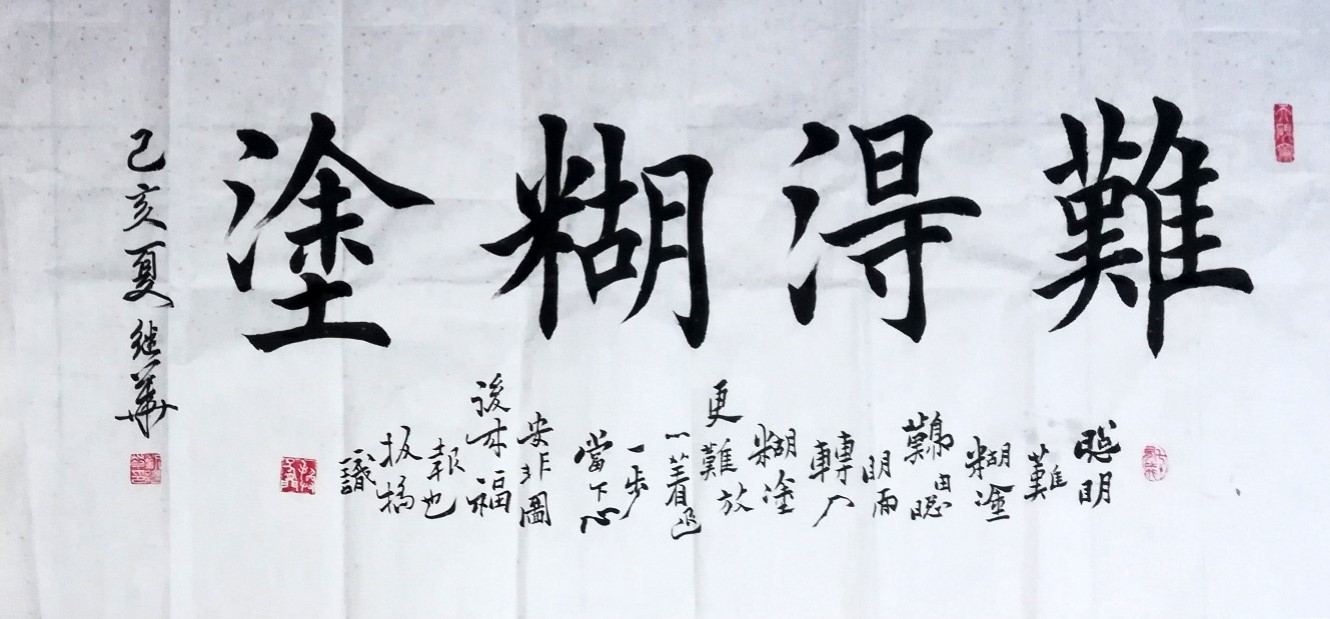 難得糊塗
聰明
難
糊塗
難由聰
明而
轉入
糊塗
更難放
一着退
一步
當下心
安非圖
後来福
報也
板橋
識
己亥夏继華